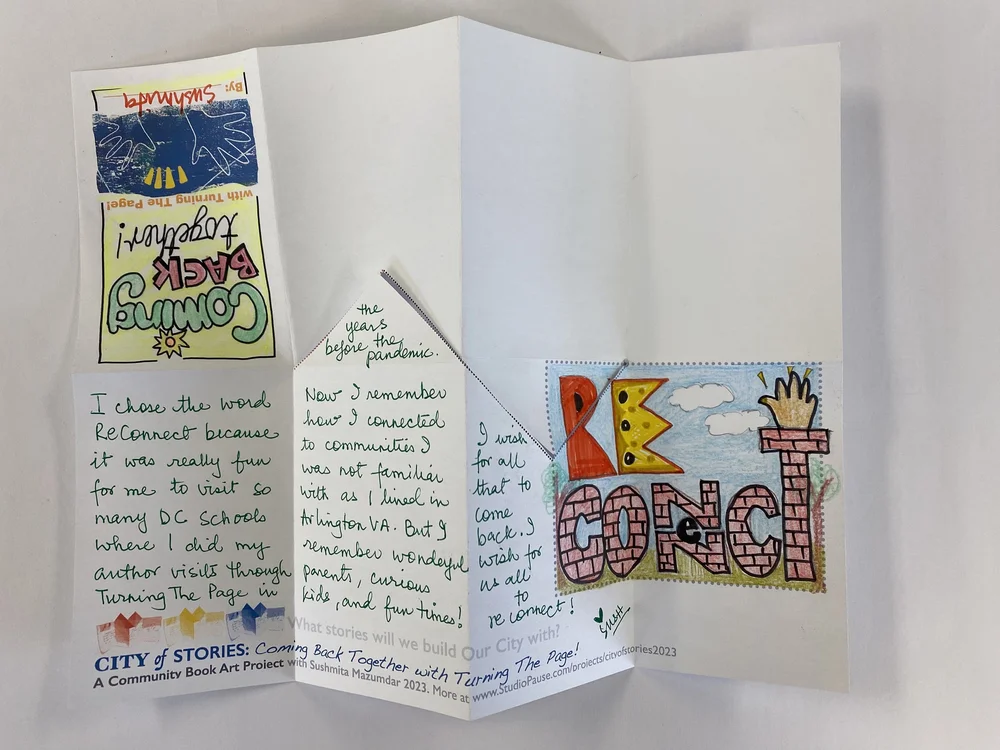 By: Sushmita
with Turning The Page!
Coming
BACK
together!
I chose the word
ReConnect because
it was really fun
for me to visit so
many DC Schools
where I did my
author visits through
Turning The Page in
the
years
before the
pandemic.
Now I remember
how I connected
to communities I
was not familiar
with as I lived in
Arlington VA. But I
remember wonderful
parents, curious
kids, and fun times!
I wish
for all
that to
come
back. I
wish for
us all
to
reconnect!
RE
CONeCT
What stories will we build Our City with?
CITY of STORIES: Coming Back Together with Turning The Page!
A Community Book Art Project with Sushmita Mazumdar 2023. More at www.StudioPause.com/projects/cityofstories2023